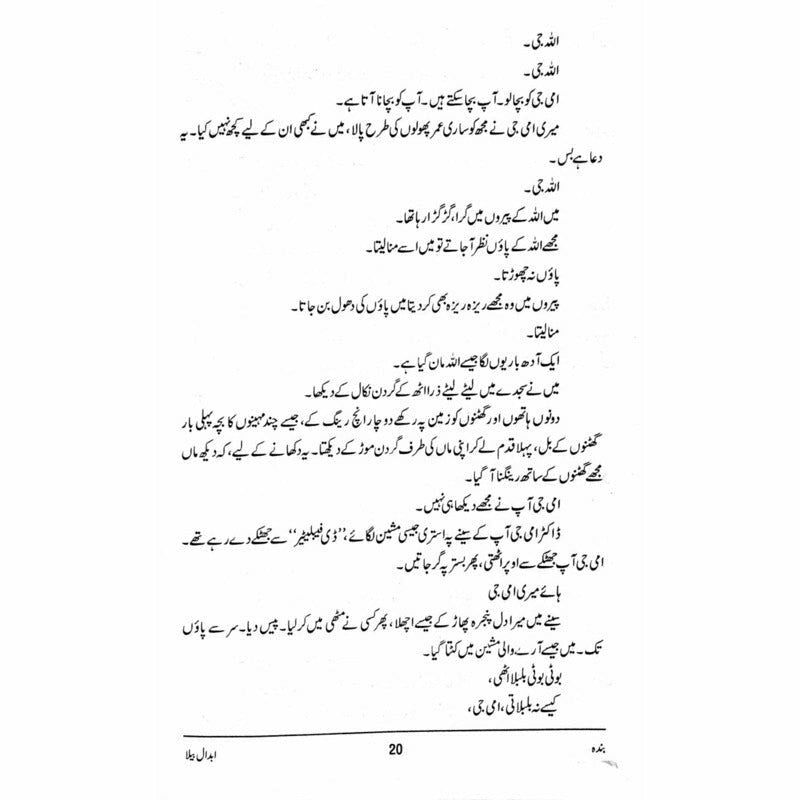 اللہ جی۔
اللہ جی۔
امی جی کو بچا لو۔ آپ بچا سکتے ہیں۔ آپ کو بچانا آتا ہے۔
میری امی جی نے مجھ کو ساری عمر پھولوں کی طرح پالا، میں نے کبھی ان کے لیے کچھ نہیں کیا۔ یہ
دعا ہے بس۔
اللہ جی۔
میں اللہ کے پیروں میں گرا، گڑگڑا رہا تھا۔
مجھے اللہ کے پاؤں نظر آ جاتے تو میں اسے منا لیتا۔
پاؤں نہ چھوڑتا۔
پیروں میں وہ مجھے ریزہ ریزہ بھی کر دیتا میں پاؤں کی دھول بن جاتا۔
منا لیتا۔
ایک آدھ بار یوں لگا جیسے اللہ مان گیا ہے۔
میں نے سجدے میں لیٹے لیٹے ذرا اٹھ کے گردن نکال کے دیکھا۔
دونوں ہاتھوں اور گھٹنوں کو زمین پہ رکھے دو چار انچ رینگ کے، جیسے چند مہینوں کا بچہ پہلی بار
گھٹنوں کے بل، پہلا قدم لے کر اپنی ماں کی طرف گردن موڑ کے دیکھتا۔ یہ دکھانے کے لیے، کہ دیکھ ماں
مجھے گھٹنوں کے ساتھ رینگنا آ گیا۔
امی جی آپ نے مجھے دیکھا ہی نہیں۔
ڈاکٹر امی جی آپ کے سینے پہ استری جیسی مشین لگائے، ’’ڈی فیبلیٹیر‘‘ سے جھٹکے دے رہے تھے۔
امی جی آپ جھٹکے سے اوپر اٹھتی، پھر بستر پہ گر جاتیں۔
ہائے میری امی جی
سینے میں میرا دل پنجرہ پھاڑ کے جیسے اچھلا، پھر کسی نے مٹھی میں کر لیا۔ پیس دیا۔ سر سے پاؤں
تک۔ میں جیسے آرے والی مشین میں کٹتا گیا۔
بوٹی بوٹی بلبلا اٹھی،
کیسے نہ بلبلاتی، امی جی،
بندہ 20 ابدال بیلا